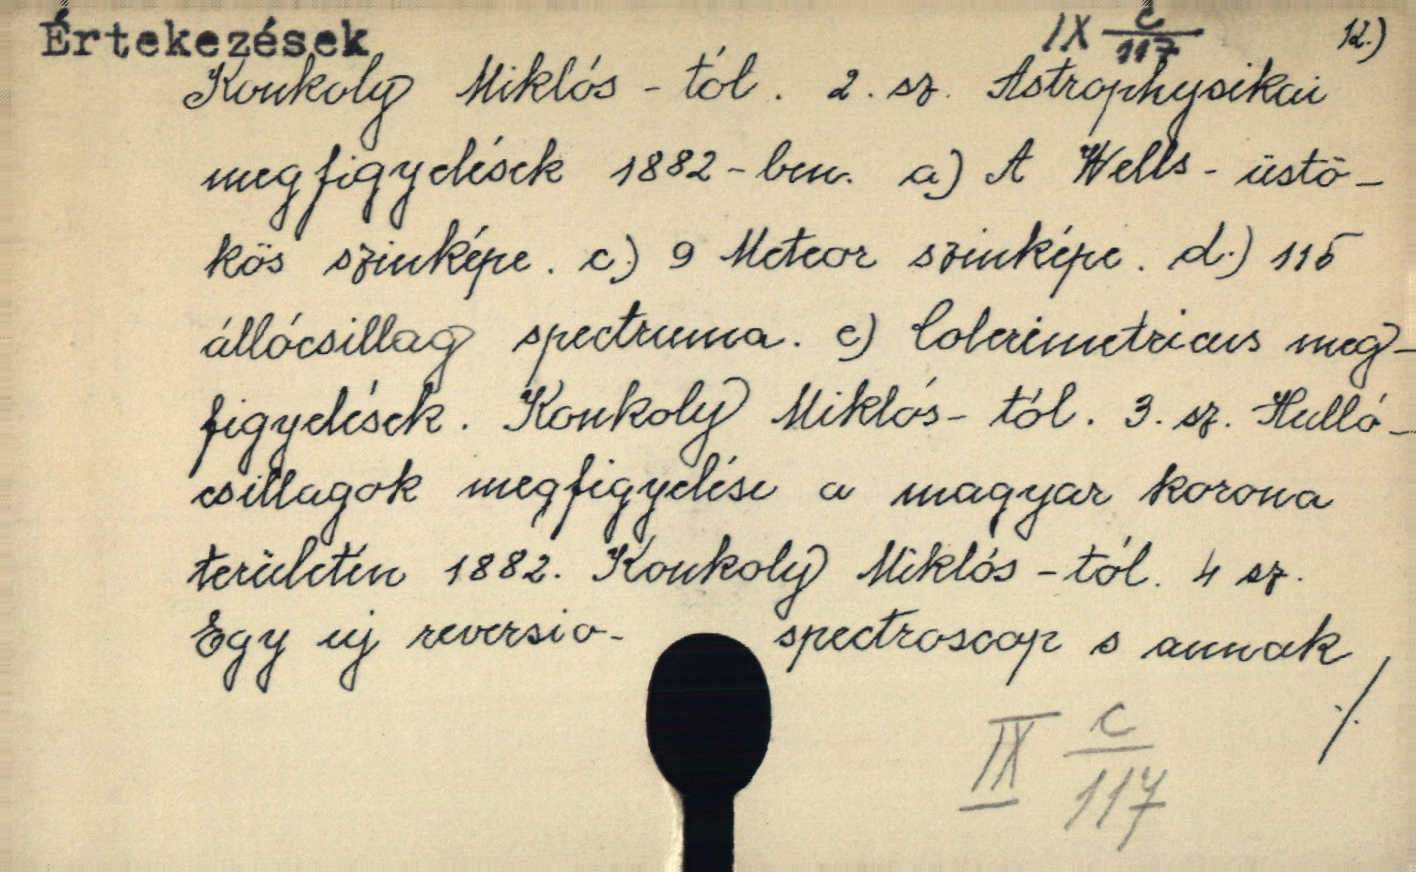 Értekezések IX c/117 12.)
Konkoly Miklós-tól. 2. sz. Astrophysikai
megfigyelések 1882-ben. a) A Wells-üstö-
kös szinképe. c.) 9 Meteor szinképe. d.) 115
állócsillag spectruma. e) Colorimetricus meg-
figyelések. Konkoly Miklós-tól. 3. sz. Hulló-
csillagok megfigyelése a magyar korona
területén 1882. Konkoly Miklós-tól. 4 sz.
Egy uj reversio- spectroscop s annak
./.
IX c/117